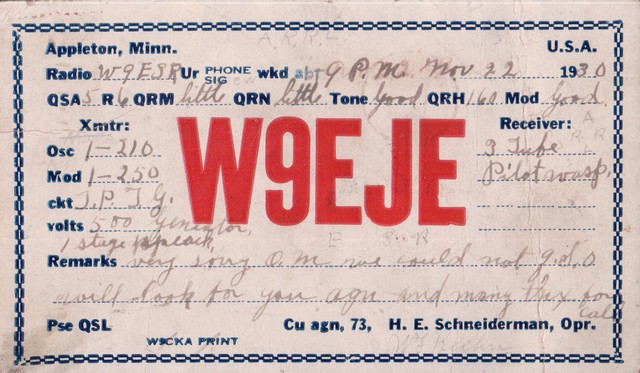 Appleton, Minn. U.S.A.
Radio W9ESR Ur PHONE SIG wkd abt 9 P.M. Nov 22 1930
QSA 5 R 6 QRM little QRN little Tone Good QRH 160 Mod Good
Xmtr: Receiver:
Osc 1-210 3 Tube
Mod 1-250 Pilot wasp.
ckt T.P.T.G.
W9EJE
volts 500 Generator,
1 stage speech,
Remarks very sorry O.M. we could not
will look for you agn and many thx for
Call
Pse QSL Cu agn, 73, H. E. Schneiderman, Opr.
W9CKA PRINT